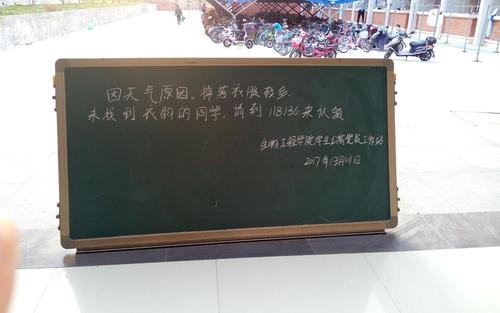 因天气原因，掉落衣服较多，
未找到衣物的同学，请到118136来认领
生物工程学院学生公寓党员工作站
2017年03月01日